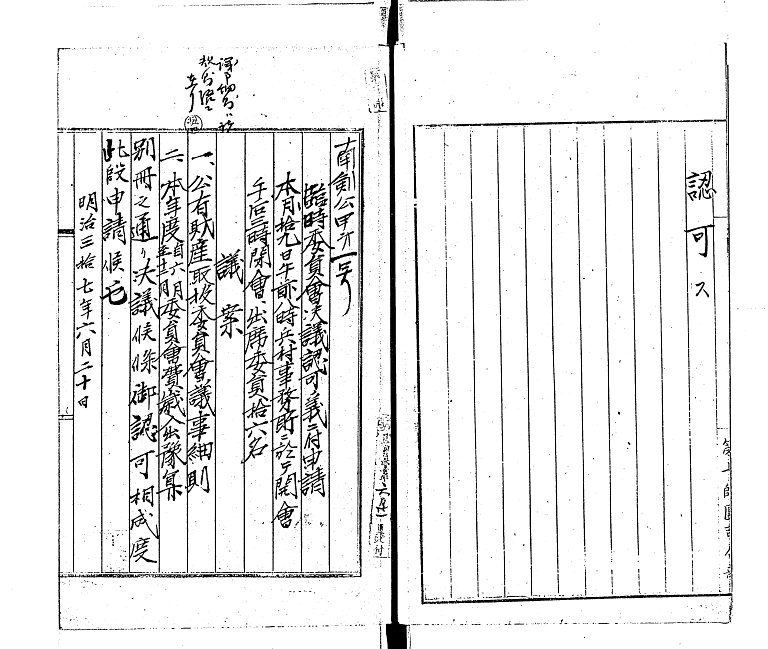 認可ス
南剣公甲第一号
臨時委員會決議認可ノ義ニ付申請
本月拾九日午前八時兵村事務所ニ於テ開會
午后二時閉會出席委員拾六名
議案
一、公有財産取扱委員會議事細則
二、本年度自六月至十二月委員會費歳入出豫算
別冊之通リ決議候條御認可相成度
此段申請候也
明治三拾七年六月二十日